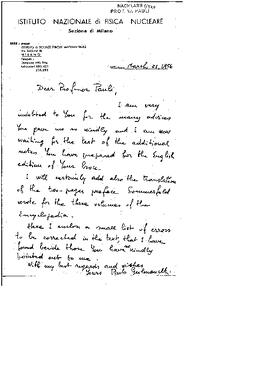 NACHLASS
PROF. W. PAULI
ISTITUTO NAZIONALE di FISICA NUCLEARE
Sezione di Milano
Milano, March 21, 1956
Dear Professor Pauli,
I am very
indebted to You for the many advices
You gave me so kindly and I am now
waiting for the text of the additional
notes You have prepared for the English
edition of Your book.
I will certainly add also the translation
of the two-pages preface Sommerfeld
wrote for the three volumes of the
Encyclopedia.
Here I enclose a small list of errors
to be corrected in the text, that I have
found beside those You have kindly
pointed out to me.
With my best regards and wishes
Yours Paolo